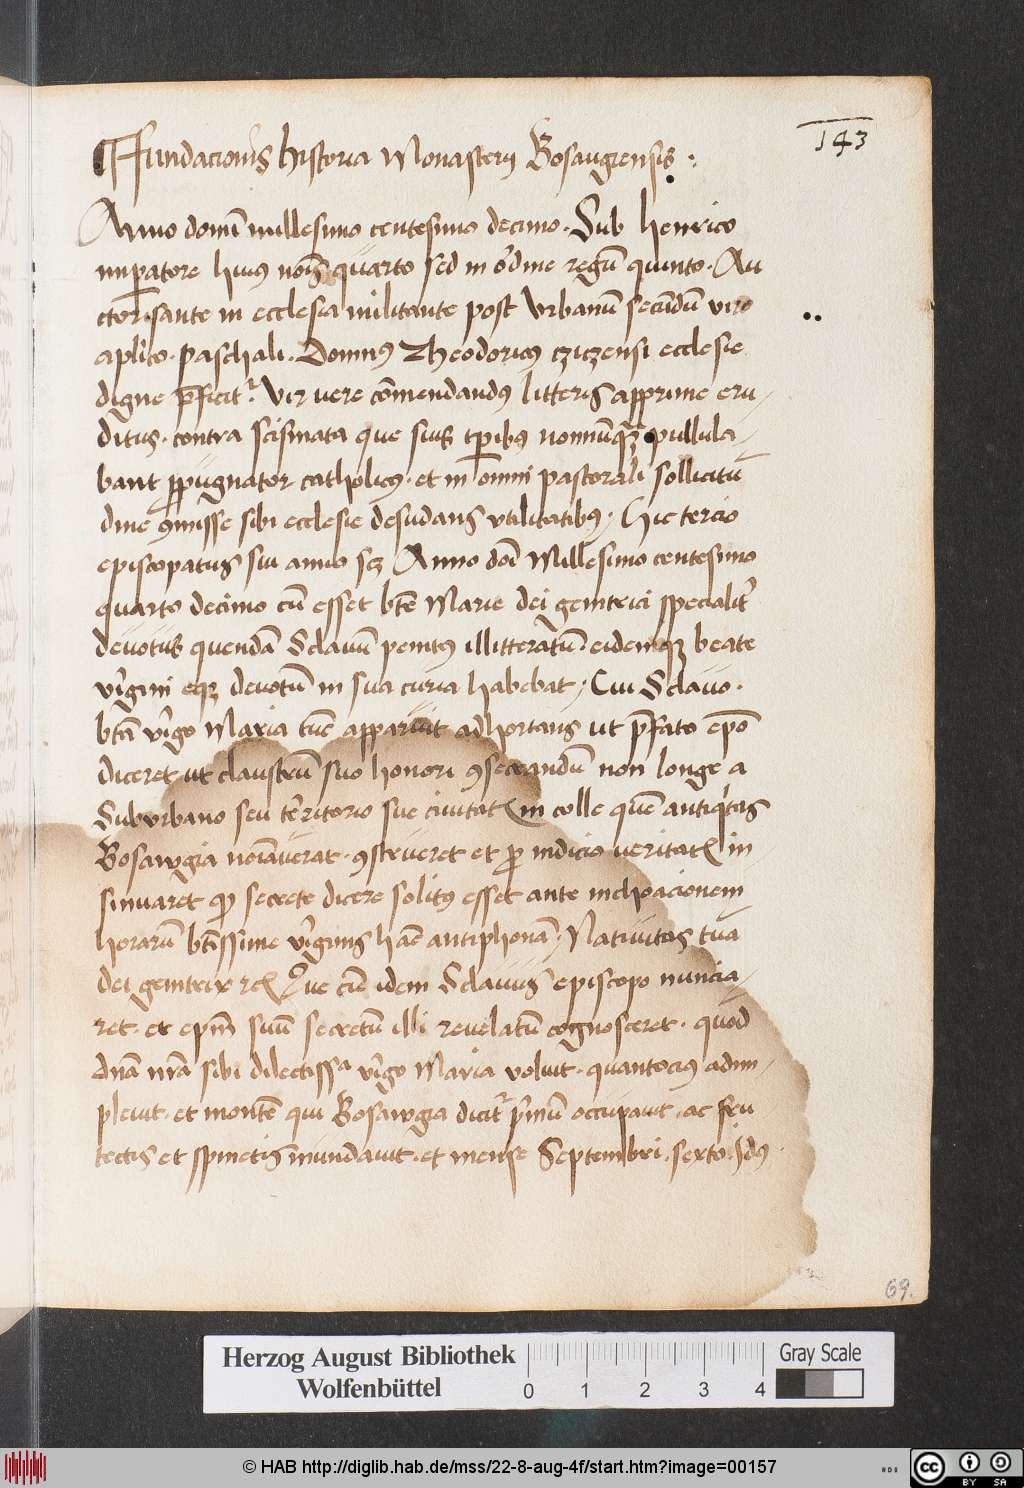 143
Fundacionis historia Monasterij Bosaugiensis :
Anno domī millesimo centesimo decimo. Sub henrico
imꝑatore huiꝰ noīs quarto sed in ordine regū quinto. Au
ctorisante in ecclesia militante post Vrbanū secūdū viro
aplico. paschali. Domnꝰ Theodoricꝰ cziczensi ecclesie
digne p̄ficit᷑. Vir vere cōmendandus litteris apprime eru-
ditus. contra scismata que suis tꝑibꝰ nonnūquā pullula-
bant ꝓpugnator catholicꝰ. et in omni pastorali sollicitu
dine ꝯmisse sibi ecclesie desudans vtilitatibꝰ, Hic tercio
episcopatus sui anno sꝫ Anno doī Millesimo centesimo
quarto decimo cū esset btē Marie dei genitrici specialit̓
devotus quendā Sclauū penitꝰ illitteratū. eidemqꝫ beate
v̓gini eqꝫ devotū in sua curia habebat, Cui Sclavo.
btā v̓go Maria tūc apparuit adhortans ut p̄fato ep̄o
diceret ut claustrū suo honori ꝯsecrandū non longe a
Suburbano seu territorio sue ciuitatꝭ in colle quē antiq̇tas
Bosawgia noīaverat. ꝯstrueret et ꝓ indicio veritatꝭ in-
sinuaret ꝙ secrete dicere solitꝰ esset ante inchoacionem
horarū btīssime v̓ginis hāc antiphonā, Nativitas tua
dei genitrix rcꝭ Que cū idem Sclauus episcopo nuncia-
ret. et epm̄ suū secretū illi revelatū cognosceret. quod
dnā nrā sibi dilectissᵃ v̓go Maria voluit. quantociꝰ adim-
pleuit. et montē qui Bosawgia dicit᷑ p̓mū occupauit. ac fru
tectis et spinetis mundauit. et mense Septembri. sexto Idꝰ
69.
Herzog August Bibliothek
Wolfenbüttel
0 1 2 3 4
Gray Scale
© HAB http://diglib.hab.de/mss/22-8-aug-4f/start.htm?image=00157
HAB
cc BY SA